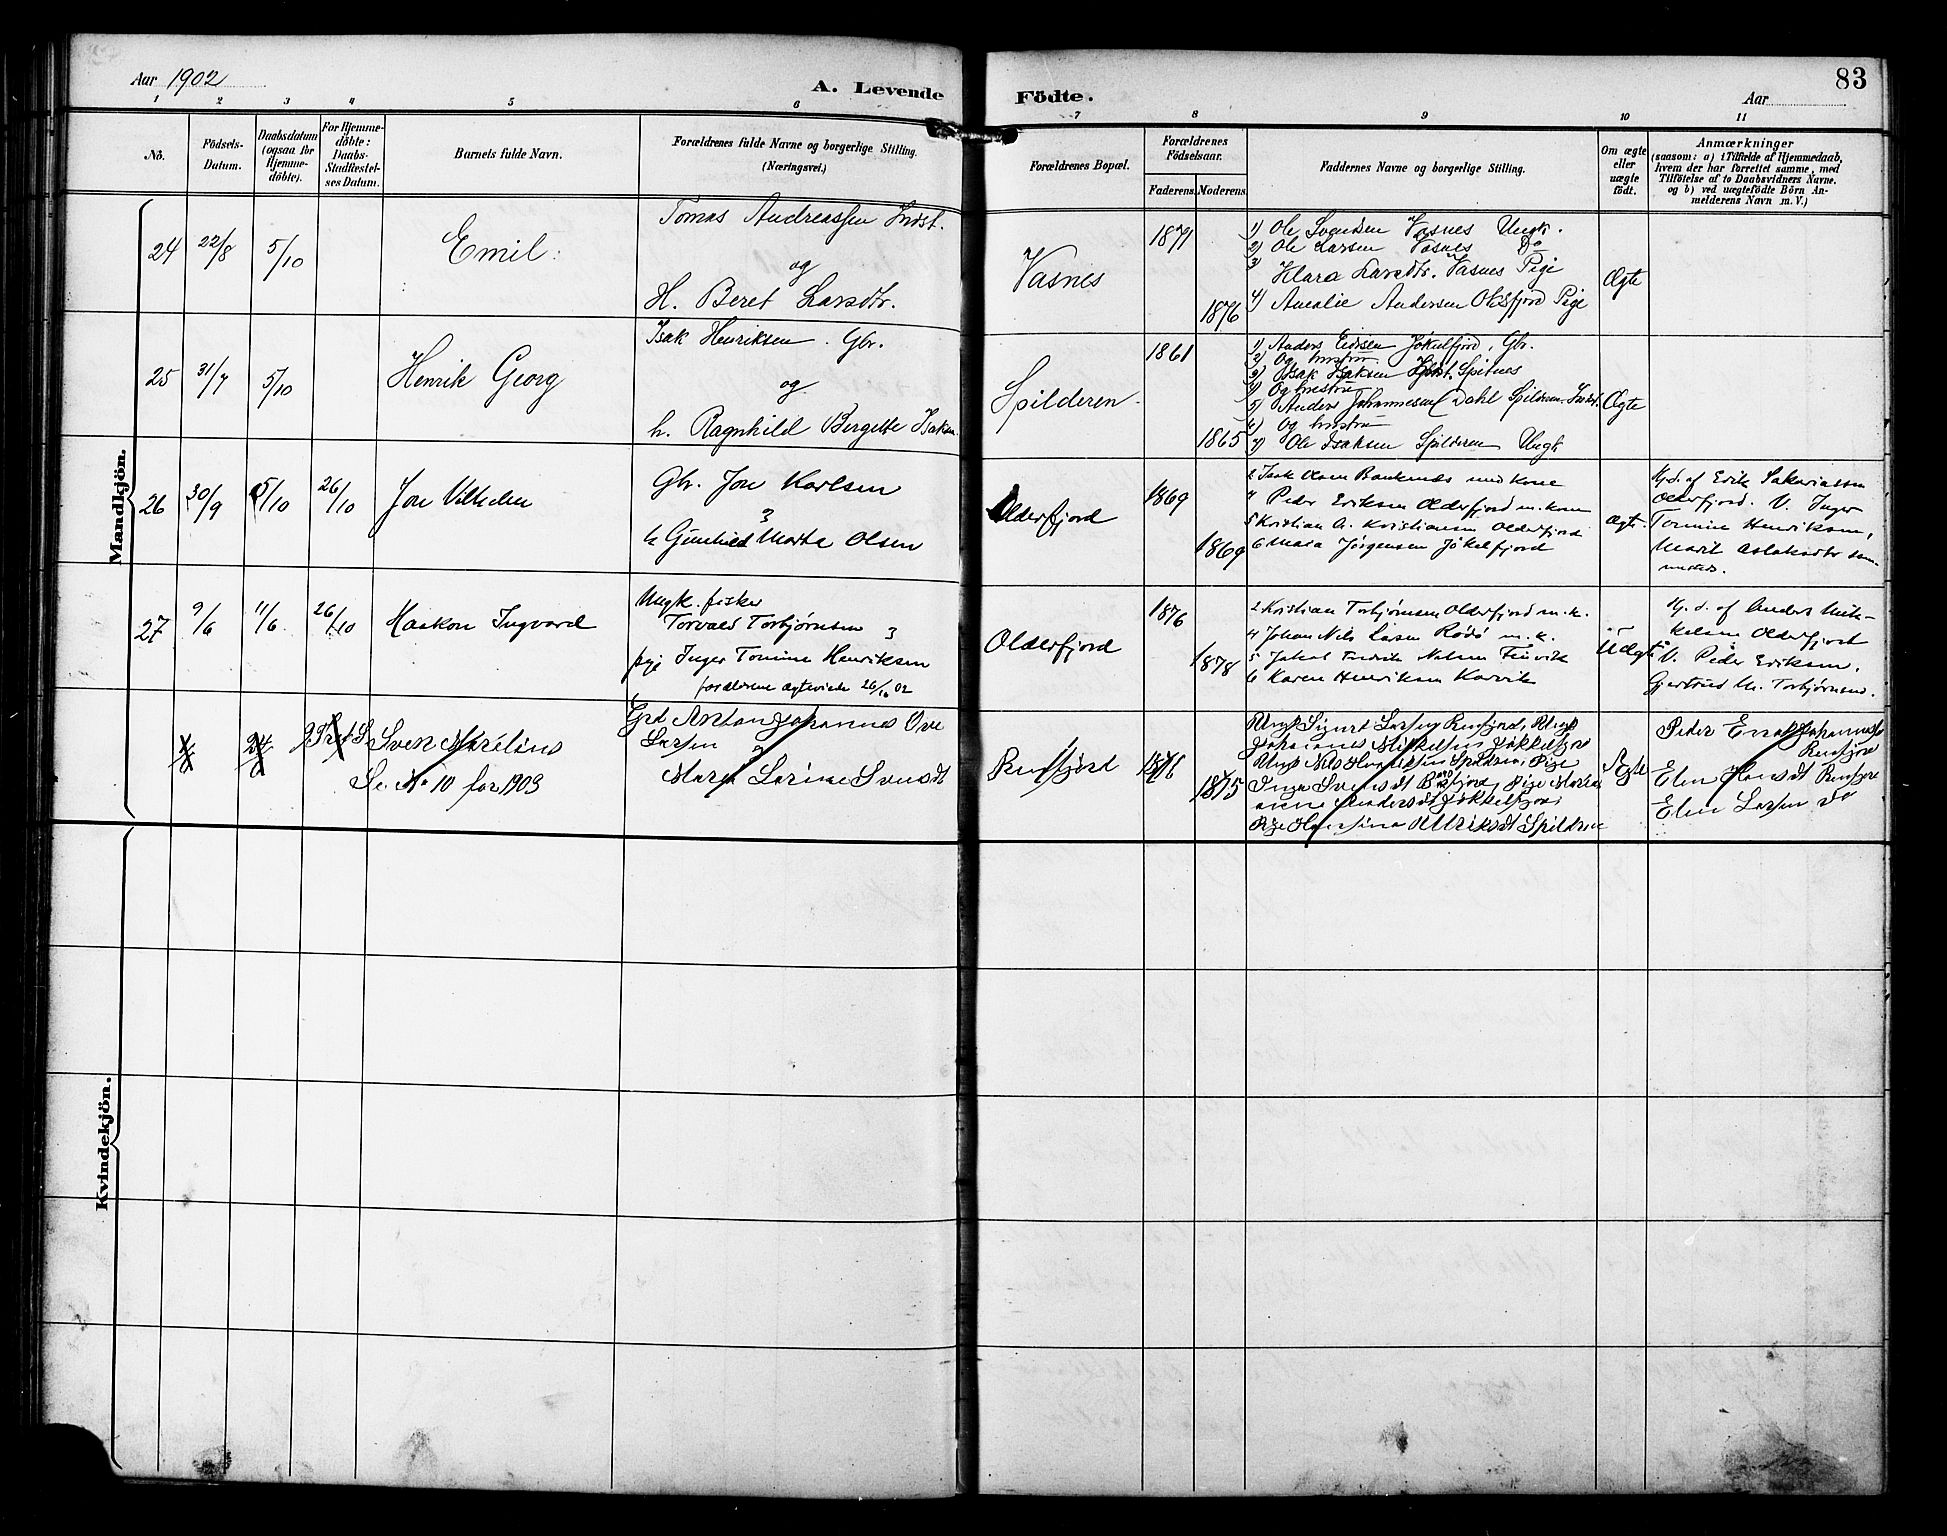 Aar 1902
A. Levende
Födte.
Aar
83
1 2 3 4 5 6 7 8 9 10 11
No.
Födsels-
Datum.
Daabsdatum
(ogsaa for
Hjemme-
döbte).
For Hjemme-
döbte:
Daabs-
Stadfæstel-
ses Datum.
Barnets fulde Navn.
Forældrenes fulde Navne og borgerlige Stilling.
(Næringsvei.)
Forældrenes Bopæl.
Forældrenes
Födselsaar.
Faderens. Moderens.
Faddernes Navne og borgerlige Stilling.
Om ægte
eller
uægte
födt.
Anmærkninger
(saasom: a) i Tilfælde af Hjemmedaab,
hvem der har forrettet samme, med
Tilföielse af to Daabsvidners Navne,
og b) ved uægtefödte Börn An-
melderens Navn m. V.)
Mandkjön.
24
22/8
5/10
Emil
Tomas Andreassen Indst.
og
H. Beret Larsdtr.
Vasnes
1871
1876
1) Ole Svendsen Vasnes Ungk.
2) Ole Larsen Vasnes Do
3) Klara Larsdtr. Vasnes Pige
4) Amalie Andersen Oksfjord Pige
Ægte
25
31/7
5/10
Henrik Georg
Isak Henriksen. Gbr.
og
h. Ragnhild Bergette Isaksen
Spilderen
1861
1865
1) Anders Eriksen Jøkelfjord, Gbr.
2) Og hustru
3) Isak Isaksen Spilnes
4) Og hustru
5) Anders Johannesen Dahl Spilderen Indst.
6) Og hustru
7) Ole Isaksen Spilderen Ungk
Ægte
26
30/9
5/10
26/10
Jon Vilhelm
Gbr. Jon Karlsen
&
h Gunhild Marta Olsen
Olderfjord
1869
1869
2 Isak Olsen med Kone
4 Peder Eriksen Olderfjord m. kone
5 Kristian A. Kristiansen Olderfjord
6 Mara Jørgensen Jøkelfjord
ægte
Hj.d. af Erik Sakariassen
Olderfjord. V. Inger
Tomine Henriksen,
Marit Aslaksdtr sam-
mesteds.
27
9/6
11/6
26/10
Haakon Ingvard
Ungk. fisker
Torvald Torbjørnsen &
pige Inger Tomine Henriksen
forældrene ægteviede 26/10 02
Olderfjord
1876
1878
2 Kristian Torbjørnsen Olderfjord m. k.
4 Johan Nils Larsen Rødø m. k.
5 Jakob Fredrik Nilsen
6 Karen Henriksen Korvik
Uægte
Hj. d. af Anders Mik-
kelsen Olderfjord
V. Peder Eriksen,
Gjertrud M. Torbjørnsen.
Sven Marelius
Se No 10 for 1903
Anton Johannes Ove
Larsen
&
Marit Larine Svensdt
Renfjord
1876
1875
Ungk Sigurd Larsen Renfjord, Ungk
Johannes Mikkelsen Jøkkelfjord
Ungk Nils Henriksen Spildren, Pige
Inga Svensdt Renfjord, Pige Maria
anne Andersdt Jøkkelfjord,
Pige Hansina Ulriksdt Spildren
Ægte
Peder Johannes
Renfjord
Elen Hansdt Renfjord
Elen Larsen do
Kvindekjön.